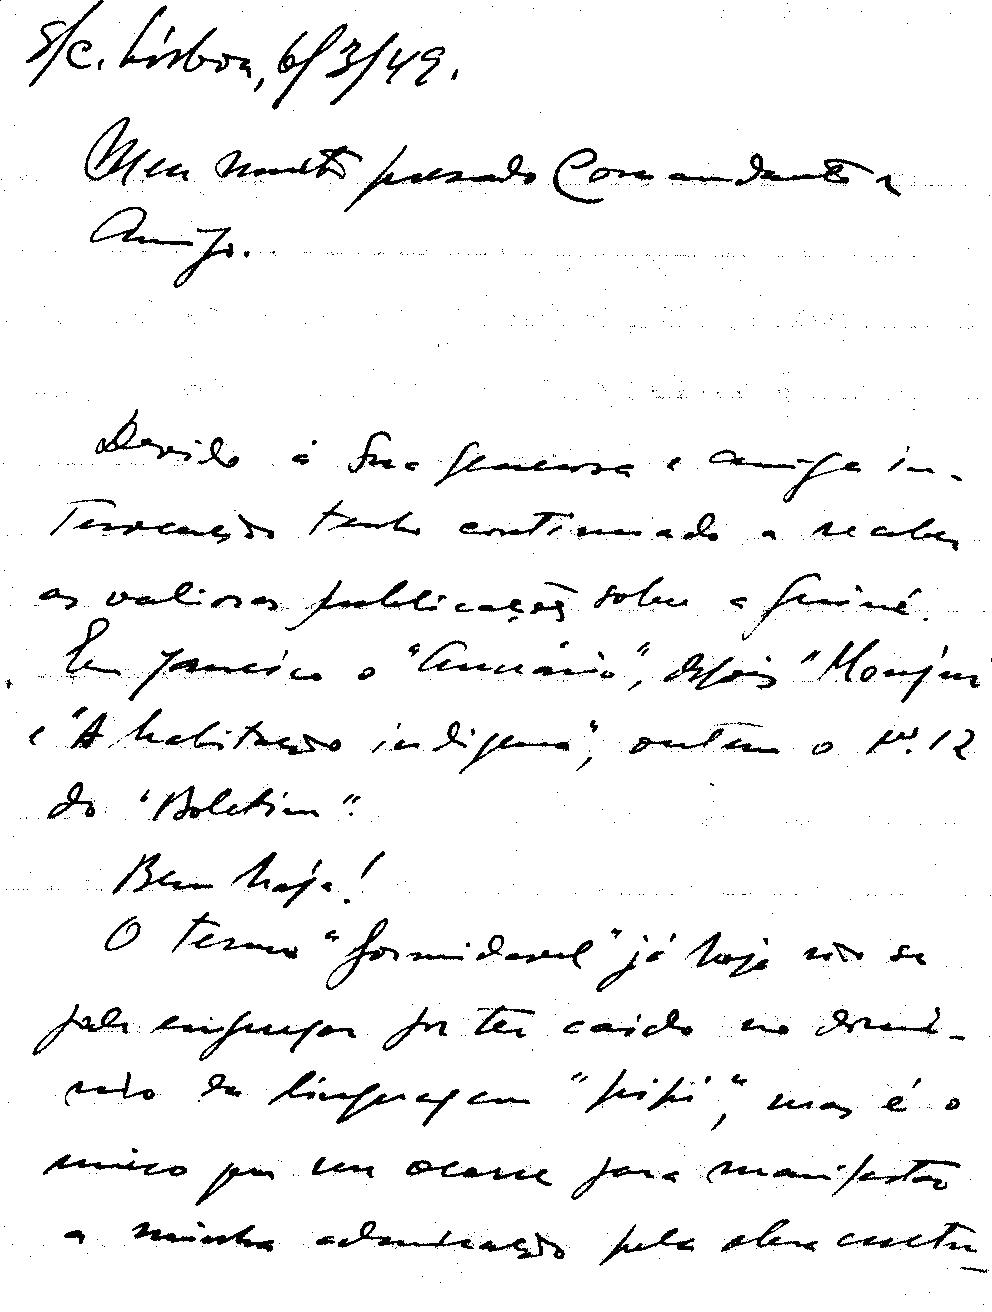 S/C. Lisboa, 6/3/49.
Meu muito prezado Comandante e
Amigo.
Devido á Sua generosa e amiga in-
tervenção tenho continuado a receber
as valiosas publicações sobre a Guiné.
Em Janeiro o "Anuário", depois "Monjur"
e "A habitação indígena", ontem o Nº. 12
do "Boletim".
Bem haja!
O termo "formidavel" já hoje não se
pode empregar por ter caido no domi-
nio da linguagem "pipi", mas é o
unico que me ocorre para manifestar
a minha admiração pela obra cultu-